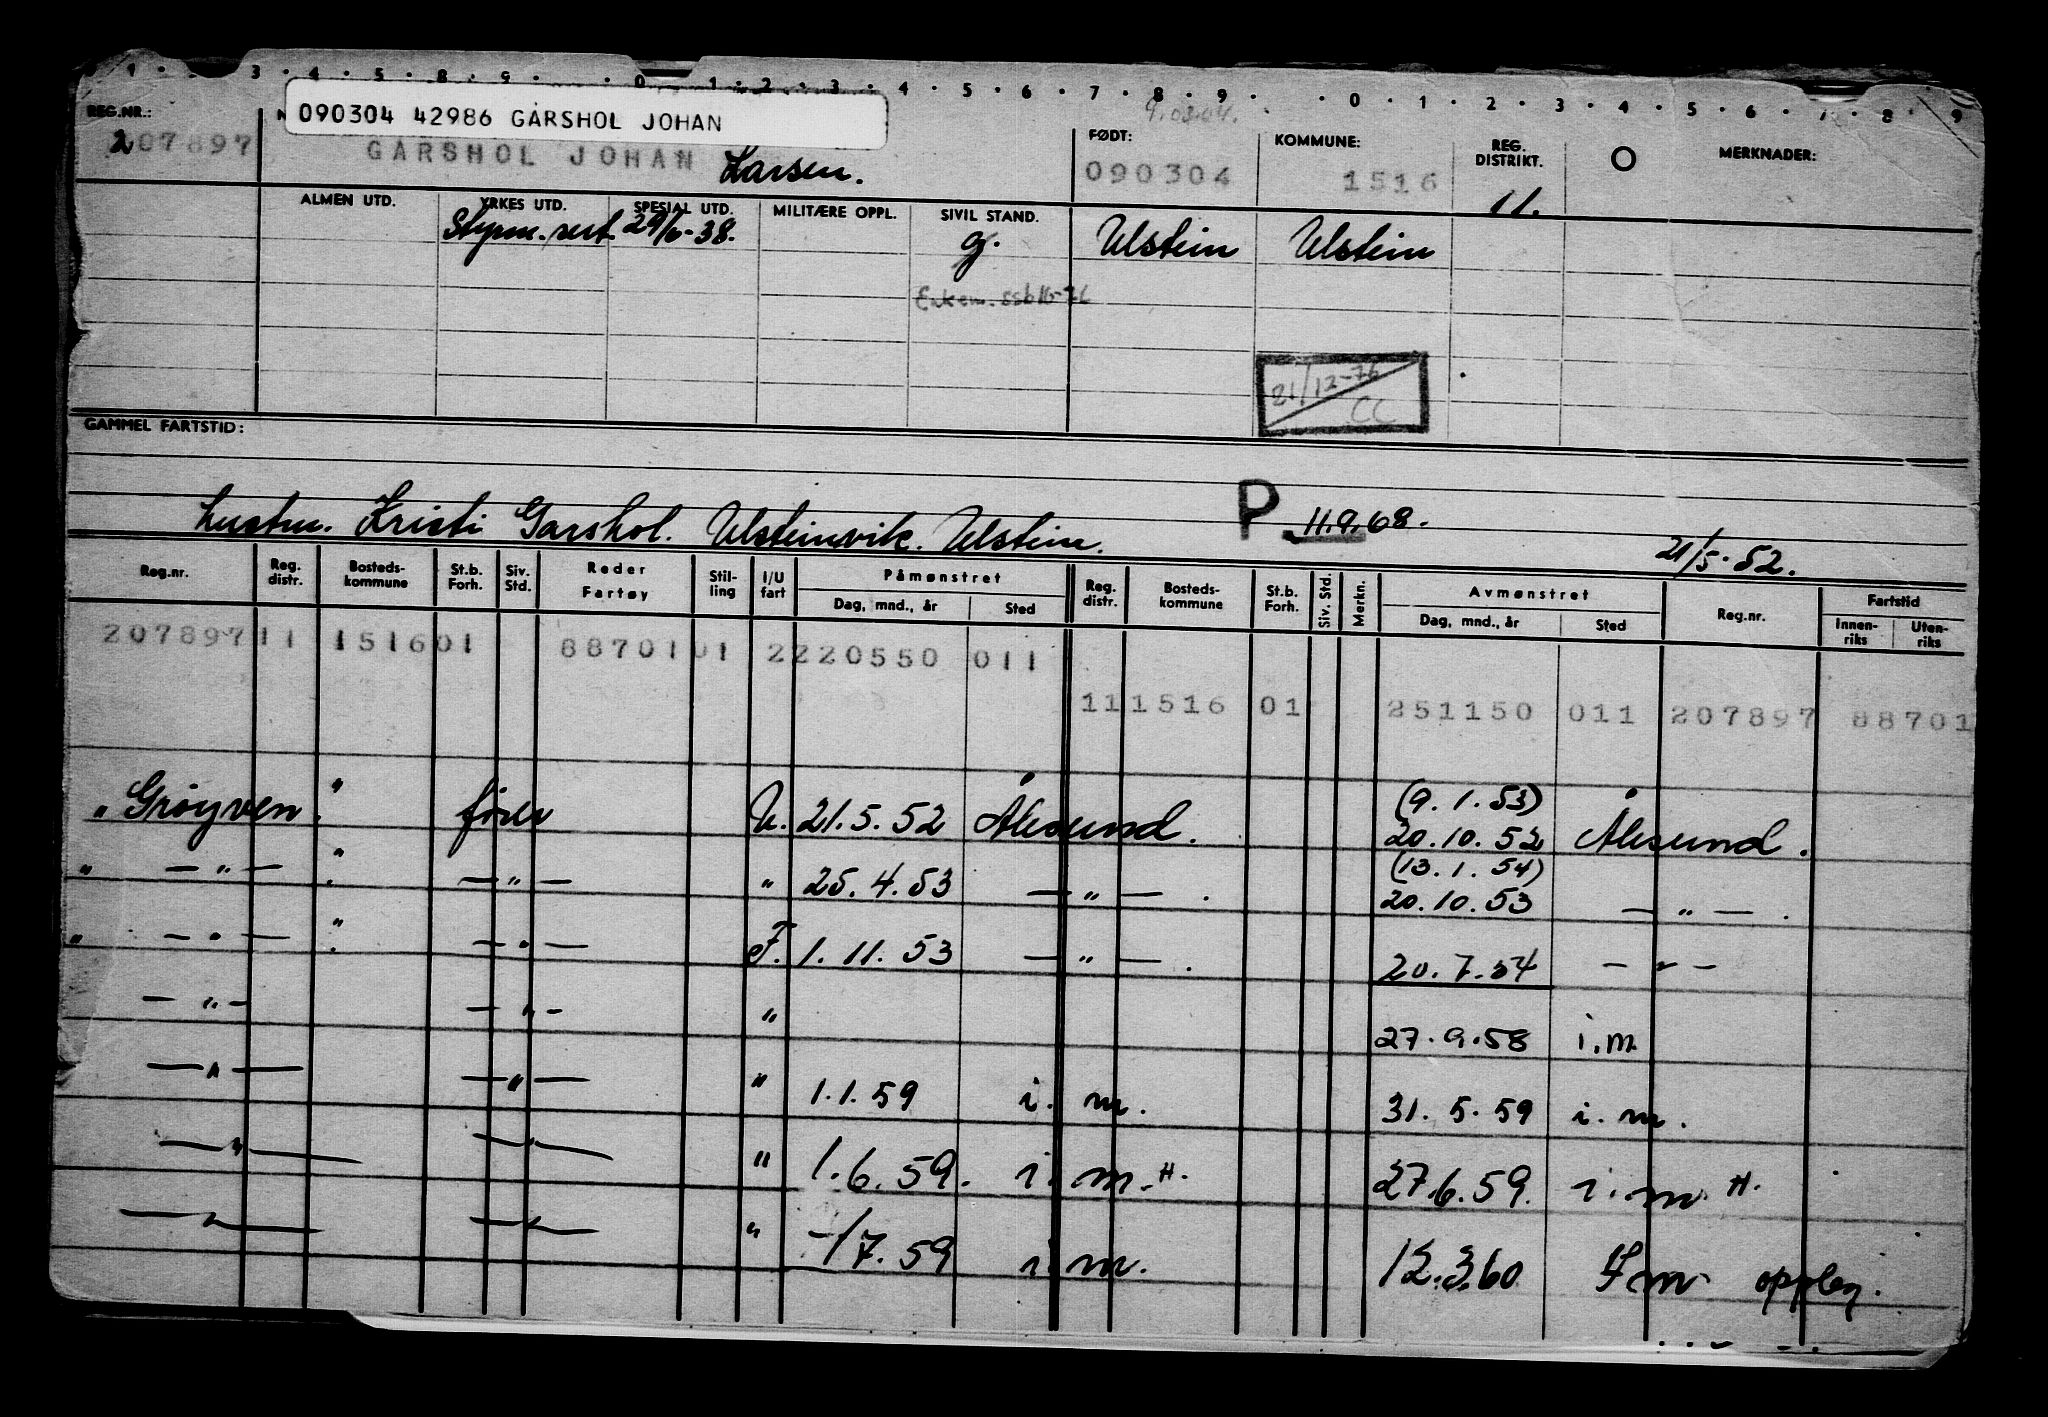 1 . . 3 . 4 . 5 . 8 . 9 . . 0 . 1 . 2 . 3 . 4 . 5 . 6 . 7 . 8 . 9 . . 0 . 1 . 2 . 3 . 4 . 5 . 6 . 7 . 8 . 9
090304 42986 GARSHOL JOHAN
9.03.04.
REG.NR.: N FØDT: KOMMUNE: REG. DISTRIKT. O MERKNADER:
207897 GARSHOL JOHAN Larsen. 090304 1516 11.
ALMEN UTD. YRKES UTD. SPESIAL UTD. MILITÆRE OPPL. SIVIL STAND.
Styrm. sert. 29/6-38. g. Ulstein Ulstein
Enkem.
21/12-76
CC
GAMMEL FARTSTID:
hustru. Kristi Garshol. Ulsteinvik. Ulstein. P 11.9.68.
21/5-52.
Reg.nr. Reg. distr. Bosteds-kommune St.b. Forh. Siv. Std. Reder Fartøy Stil-ling I/U fart Påmønstret Dag, mnd., år Sted Reg. distr. Bosteds-kommune St.b. Forh. Siv. Std. Merkn. Avmønstret Dag, mnd., år Sted Reg.nr. Fartstid Innen-riks Uten-riks
207897 11 1516 01 88701 01 2 220550 011
11 1516 01 251150 011 207897 88701
(9.1.53)
" Grøyven. " fører U. 21.5.52 Ålesund. 20.10.52 Ålesund.
(13.1.54)
" — " — " — " — " 25.4.53 — " — . 20.10.53 — " — .
" — " — " — " — F. 1.11.53 — " — . 20.7.54 — " —
— " — — " — " 27.9.58 i.m
— " — — " — " 1.1.59 i. m. 31.5.59 i. m.
— " — — " — " 1.6.59. i. m. H. 27.6.59. i. m. H.
— " — — " — " -/7.59 i. m. 12.3.60 opplag.